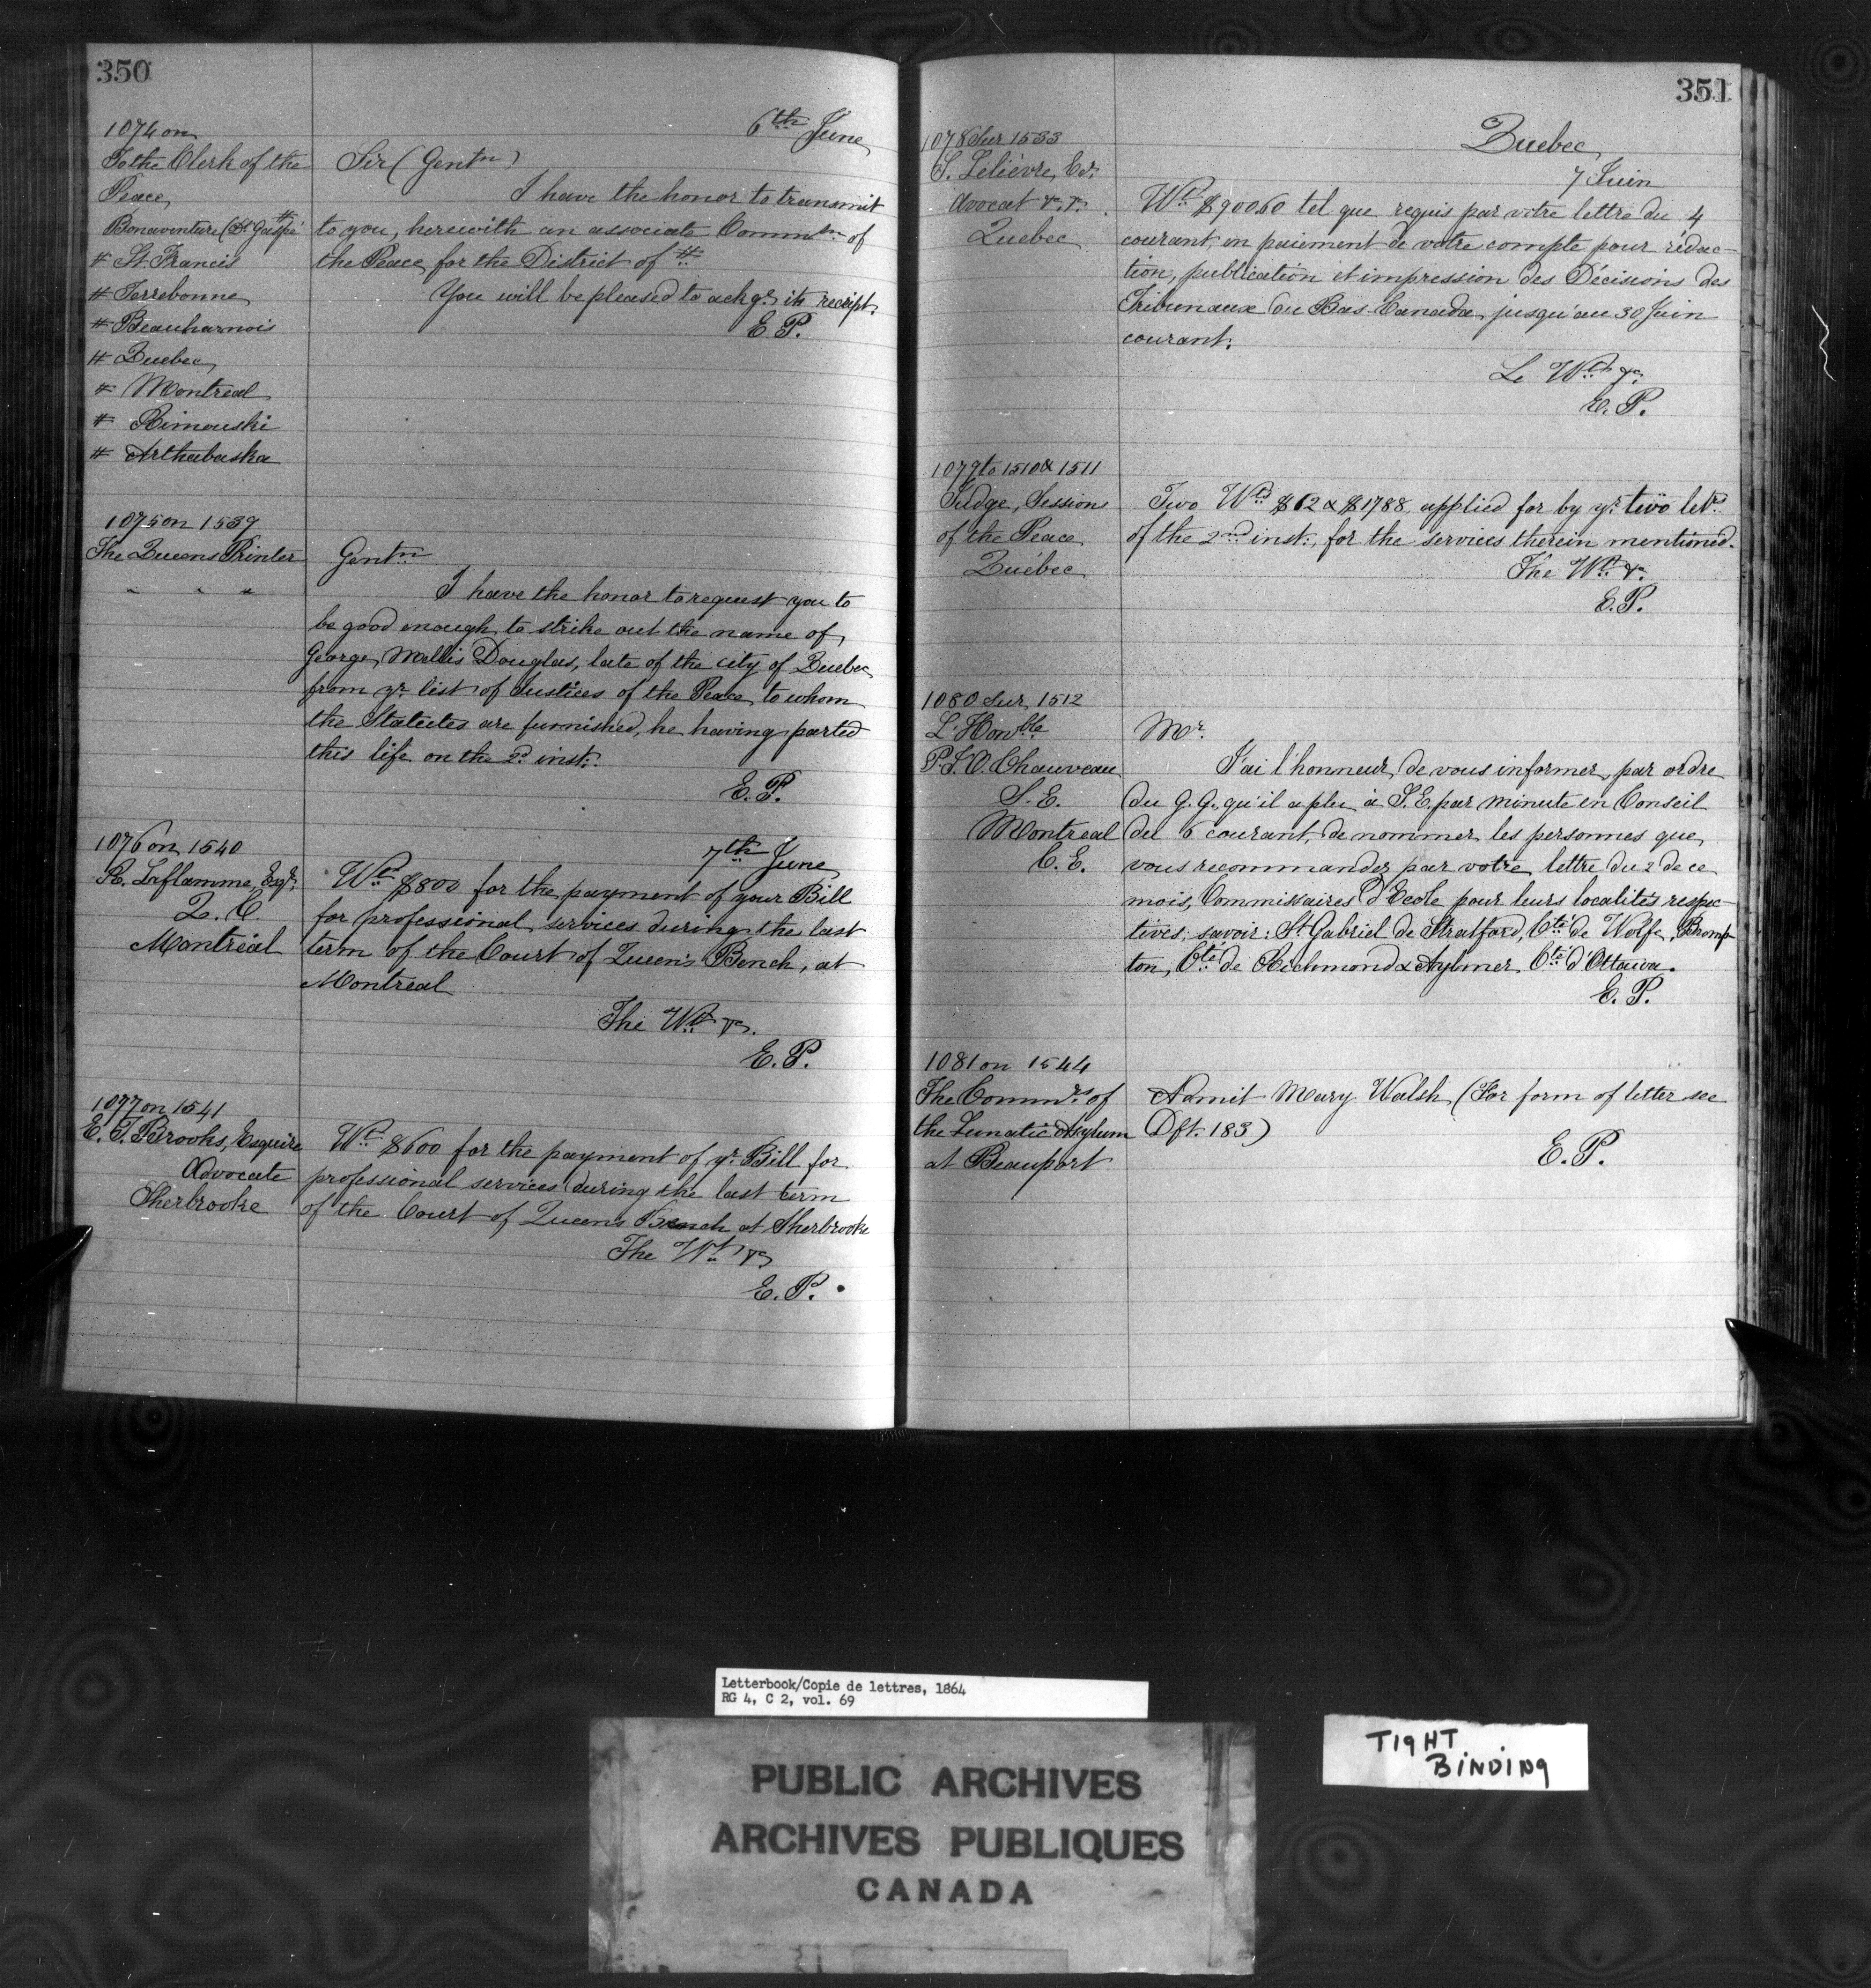 350
6th June
1074 on
To the Clerk of the
Peace,
Bonaventure (Dt Gaspé #
# St Francis
# Terrebonne
# Beauharnois
# Quebec
# Montreal
# Rimouski
# Arthabaska
Sir (Gentn)
I have the honor to transmit
to you, herewith an associate Commsn of
the Peace, for the District of #
You will be pleased to ackge its receipt.
E. P.
1075 on 1539
The Queens Printer
" " "
Gentn
I have the honor to request you to
be good enough to strike out the name of
George Mellis Douglas, late of the city of Quebec
from yr list of Justices of the Peace, to whom
the Statutes are furnished, he having parted
this life on the 2d inst.
E. P.
1076 on 1540
R. Laflamme, Esqr.
Q. C.
Montréal
7th June
Wt $800 for the payment of your Bill
for professional services during the last
term of the Court of Queen's Bench, at
Montreal
The Wt &c.
E. P.
1077 on 1541
E. T. Brooks, Esquire
Advocate
Sherbrooke
Wt $600 for the payment of yr Bill for
professional services during the last term
of the Court of Queens Bench at Sherbrooke
The Wt &c
E. P.
351
Quebec
7 Juin
1078 Sur 1533
S. Lelièvre, Er.
Avocat &c. &c.
Quebec
Wt $900.60 tel que requis par votre lettre du 4
courant, en paiement de votre compte pour rédac-
tion, publication et impression des Décisions des
Tribunaux du Bas-Canada, jusqu'au 30 Juin
courant.
Le Wt &c.
E. P.
1079 to 1510 & 1511
Judge, Sessions
of the Peace
Québec
Two Wts $62 & $1788, applied for by yr two letrs
of the 2nd inst., for the services therein mentioned.
The Wt &c.
E. P.
1080 Sur 1512
L'Honble
P. J. O. Chauveau
S. E.
Montreal
C. E.
Mr.
J'ai l'honneur, de vous informer, par ordre
du G. G. qu'il a plu à S. E. par minute en Conseil
du 6 courant, de nommer les personnes que
vous recommandez par votre lettre du 2 de ce
mois, Commissaires d'Ecole pour leurs localités respec-
tives; savoir: St Gabriel de Stratford, Cté de Wolfe, Bromp-
ton, Cté de Richmond & Aylmer, Cté d'Ottawa.
E. P.
1081 on 1544
The Commrs of
the Lunatic Asylum
at Beauport
Admit Mary Walsh (For form of letter see
Dft. 183)
E. P.
Letterbook/Copie de lettres, 1864
RG 4, C 2, vol. 69
PUBLIC ARCHIVES
ARCHIVES PUBLIQUES
CANADA
TIGHT
BINDING